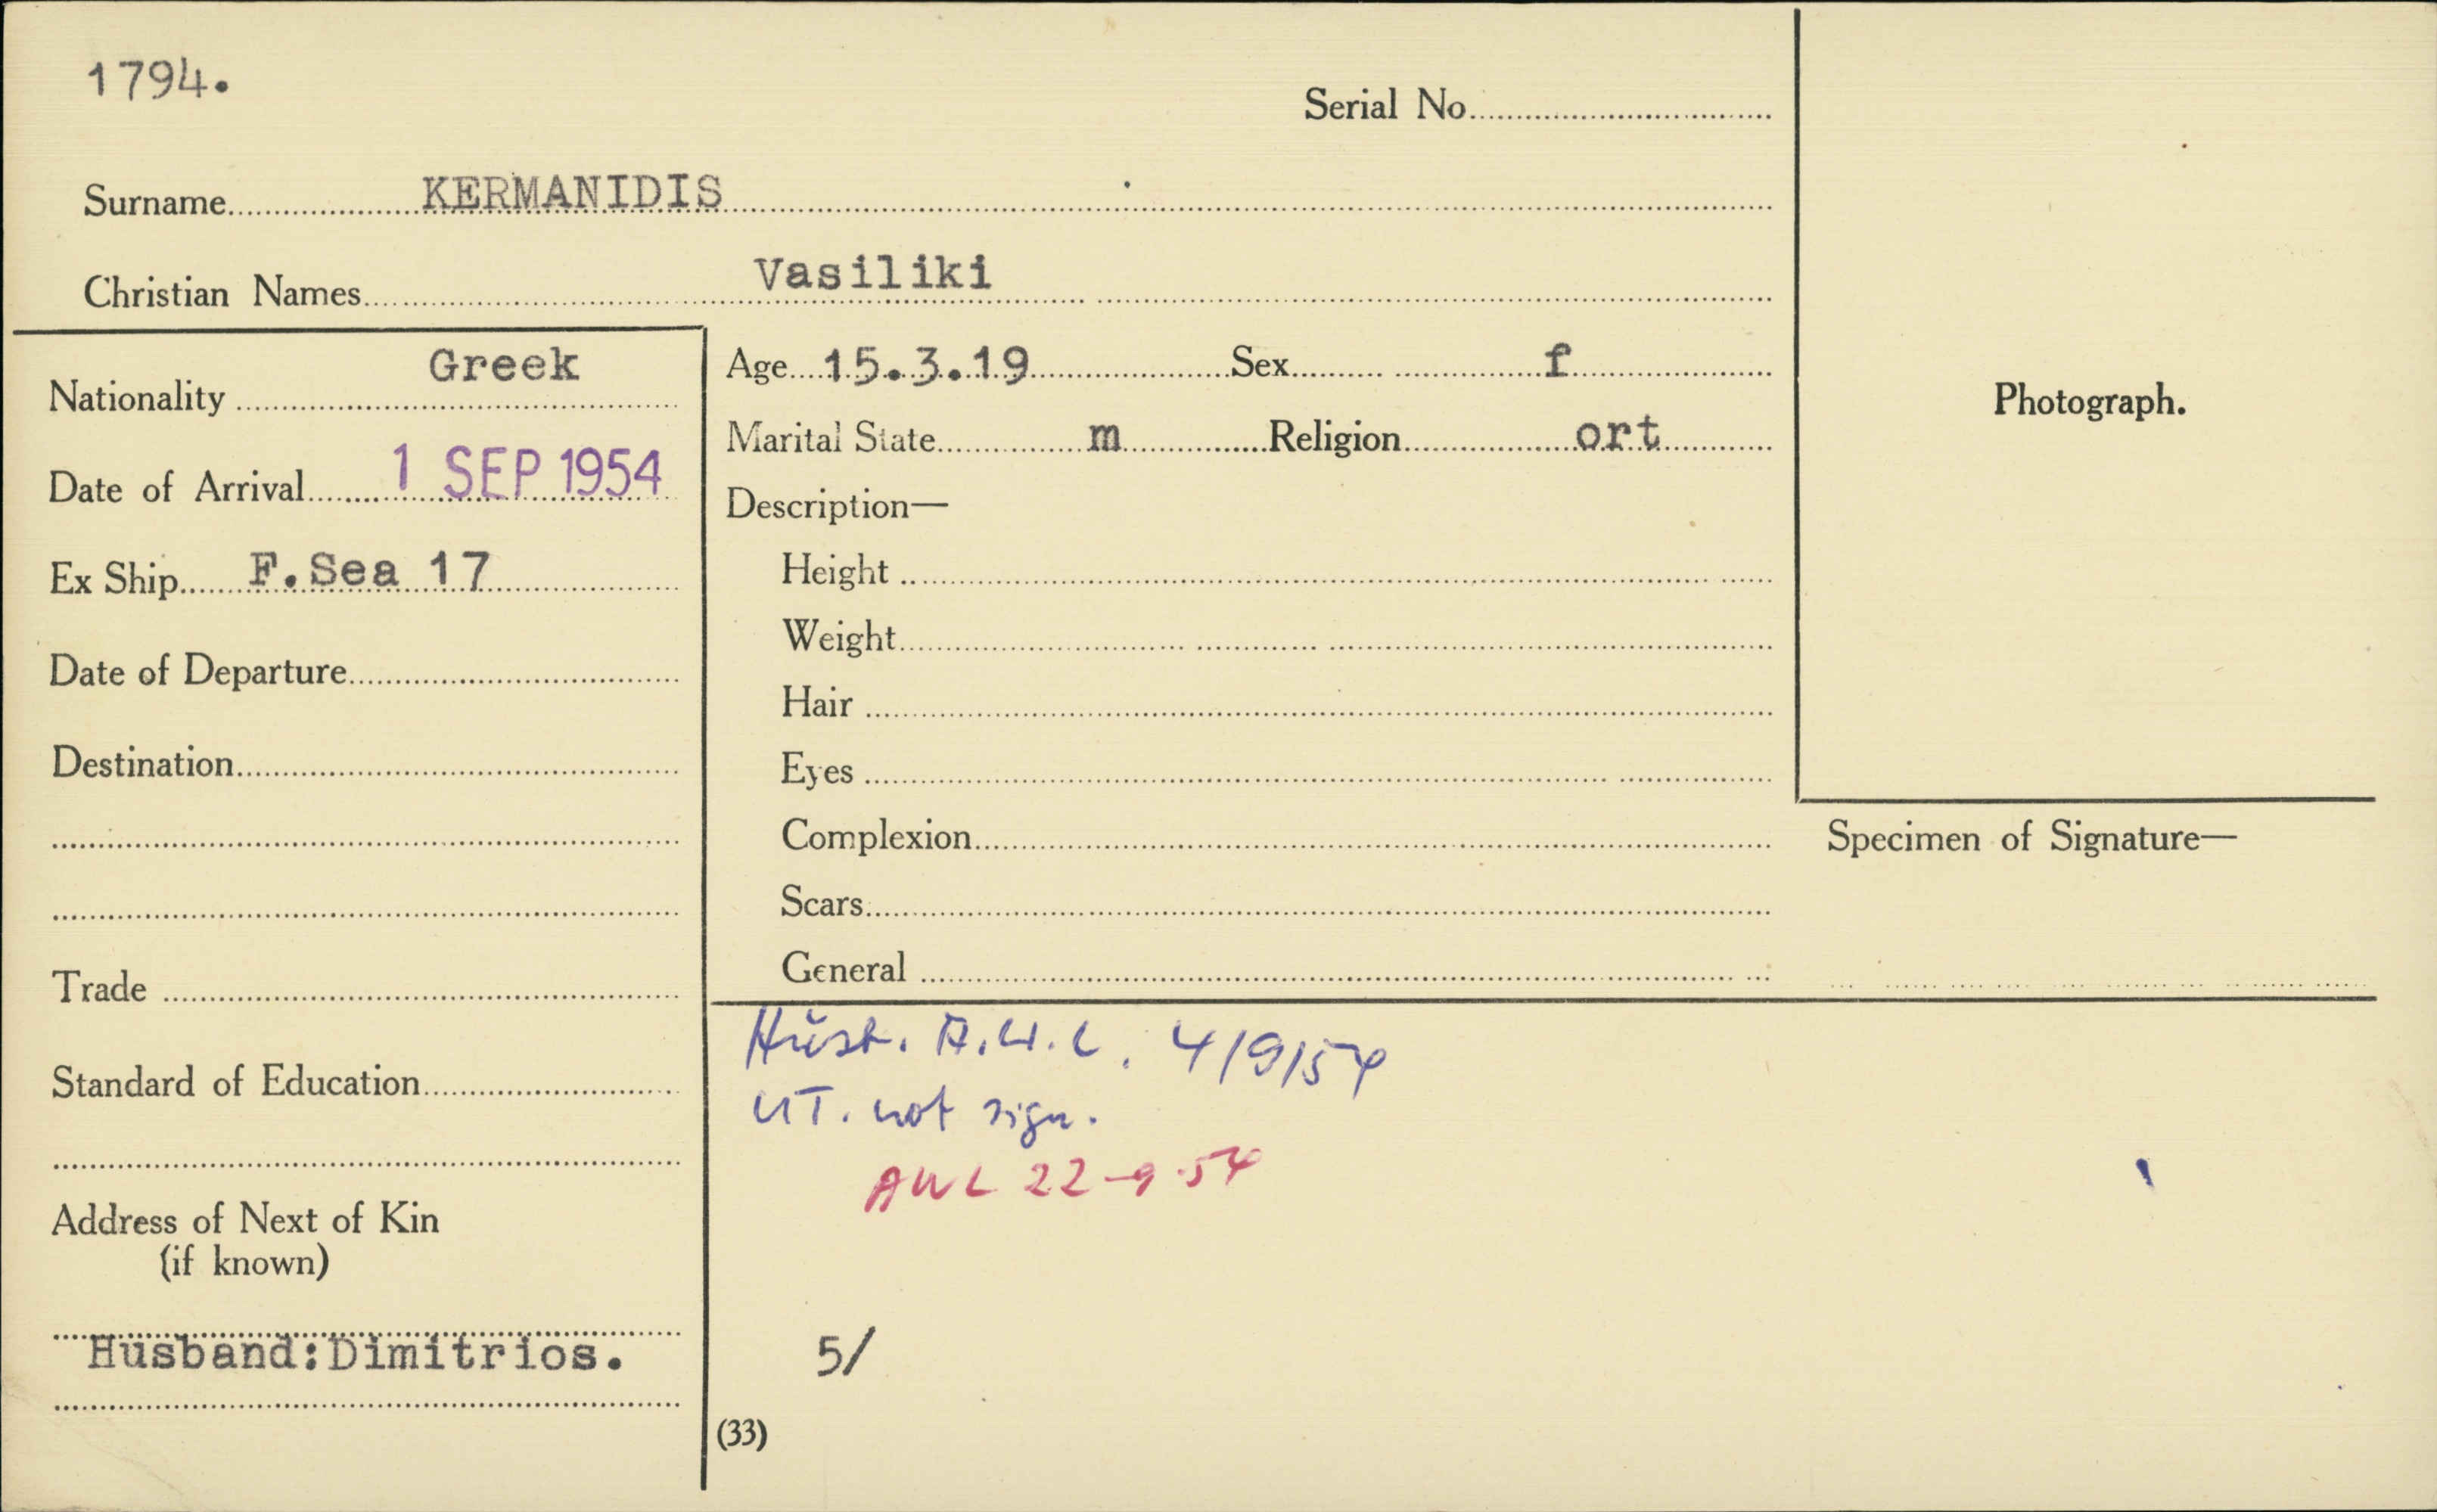 1794.
Serial No.
Surname KERMANIDIS
Christian Names Vasiliki
Nationality Greek
Date of Arrival 1 SEP 1954
Ex Ship F.Sea 17
Date of Departure
Destination
Trade
Standard of Education
Address of Next of Kin
(if known)
Husband:Dimitrios.
Age 15.3.19 Sex f
Marital State m Religion ort
Description—
Height
Weight
Hair
Eyes
Complexion
Scars
General
Photograph.
Specimen of Signature—
Husb. A.W.L. 4/9/54
UT. not sign.
AWL 22-9-54
5/
(33)